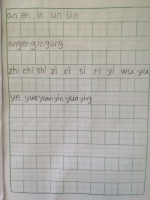 an en in un ün
ang eng ing ong
zhi chi shi zi ci si ri yi wu yu
ye yue yuan yin yun ying